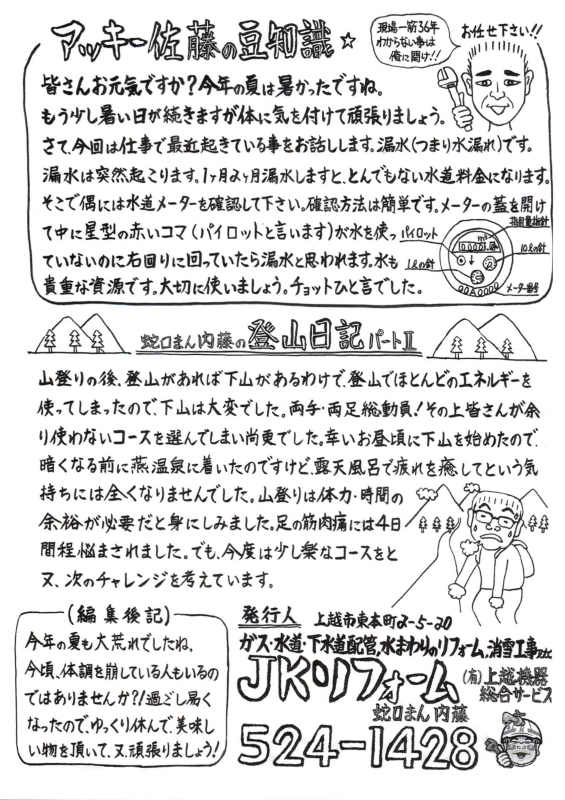 アッキー佐藤の豆知識☆
現場一筋36年
わからない事は
俺に聞け!!
お任せ下さい!!
皆さんお元気ですか？今年の夏は暑かったですね。
もう少し暑い日が続きますが体に気を付けて頑張りましょう。
さて、今回は仕事で最近起きている事をお話しします。漏水(つまり水漏れ)です。
漏水は突然起こります。1ヶ月2ヶ月漏水しますと、とんでもない水道料金になります。
そこで偶には水道メーターを確認して下さい。確認方法は簡単です。メーターの蓋を開け
て中に星型の赤いコマ(パイロットと言います)が水を使っ
ていないのに右回りに回っていたら漏水と思われます。水も
貴重な資源です。大切に使いましょう。チョットひと言でした。
パイロット
1ℓの針
指針
10ℓの針
メーター番号
m³
蛇口まん内藤の登山日記パートⅡ
山登りの後、登山があれば下山があるわけで、登山でほとんどのエネルギーを
使ってしまったので、下山は大変でした。両手・両足総動員！その上皆さんが余
り使わないコースを選んでしまい尚更でした。幸いお昼頃に下山を始めたので、
暗くなる前に燕温泉に着いたのですけど、露天風呂で疲れを癒してという気
持ちには全くなりませんでした。山登りは体力・時間の
余裕が必要だと身にしみました。足の筋肉痛には4日
間程悩まされました。でも、今度は少し楽なコースをと
又、次のチャレンジを考えています。
(編集後記)
今年の夏も大荒れでしたね、
今頃、体調を崩している人もいるの
ではありませんか?!過ごし易く
なったので、ゆっくり休んで、美味し
い物を頂いて、又頑張りましょう！
発行人 上越市東本町2-5-20
ガス・水道・下水道配管,水まわりのリフォーム,消雪工事etc
JKリフォーム
(有)上越機器
総合サービス
蛇口まん内藤
524-1428